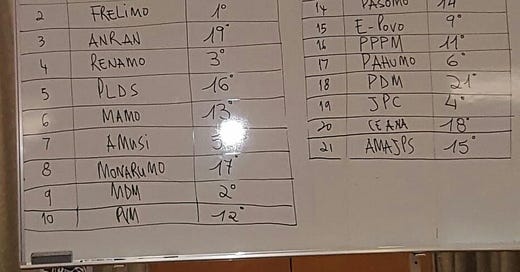 2 FRELIMO 1°
3 ANRAN 19°
4 RENAMO 3°
5 PLDS 16°
6 MAMO 13°
7 AMUSI
8 MONARUMO 17°
9 MDM 2°
10 PVM 12°
14 PASOMO 14°
15 E-POVO 9°
16 PPPM 11°
17 PAHUMO 6°
18 PDM 21°
19 JPC 4°
20 CEANA 18°
21 AMAJPS 15°